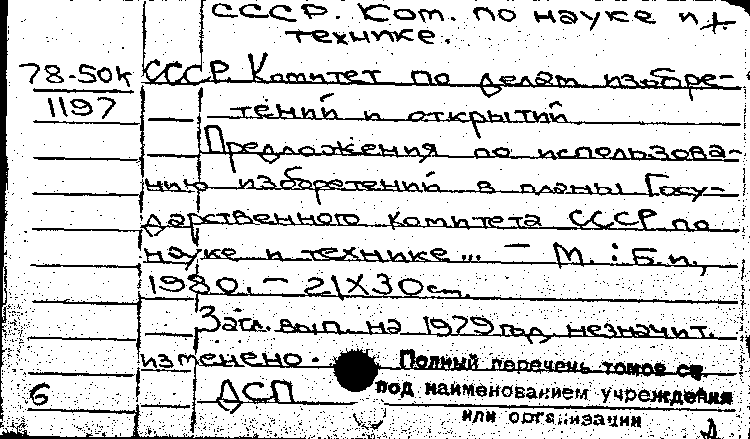 СССР. Ком. по науке и
технике.
78-50к СССР. Комитет по делам изобре-
1197 тений и открытий.
Предложения по использова-
нию изобретений в планы Госу-
дарственного комитета СССР по
науке и технике... – М. : Б.и.,
1980. – 21X30 см.
Загл. вып. на 1979 год незначит.
изменено.
Полный перечень томов см.
под наименованием учреждения
или организации
6 ДСП